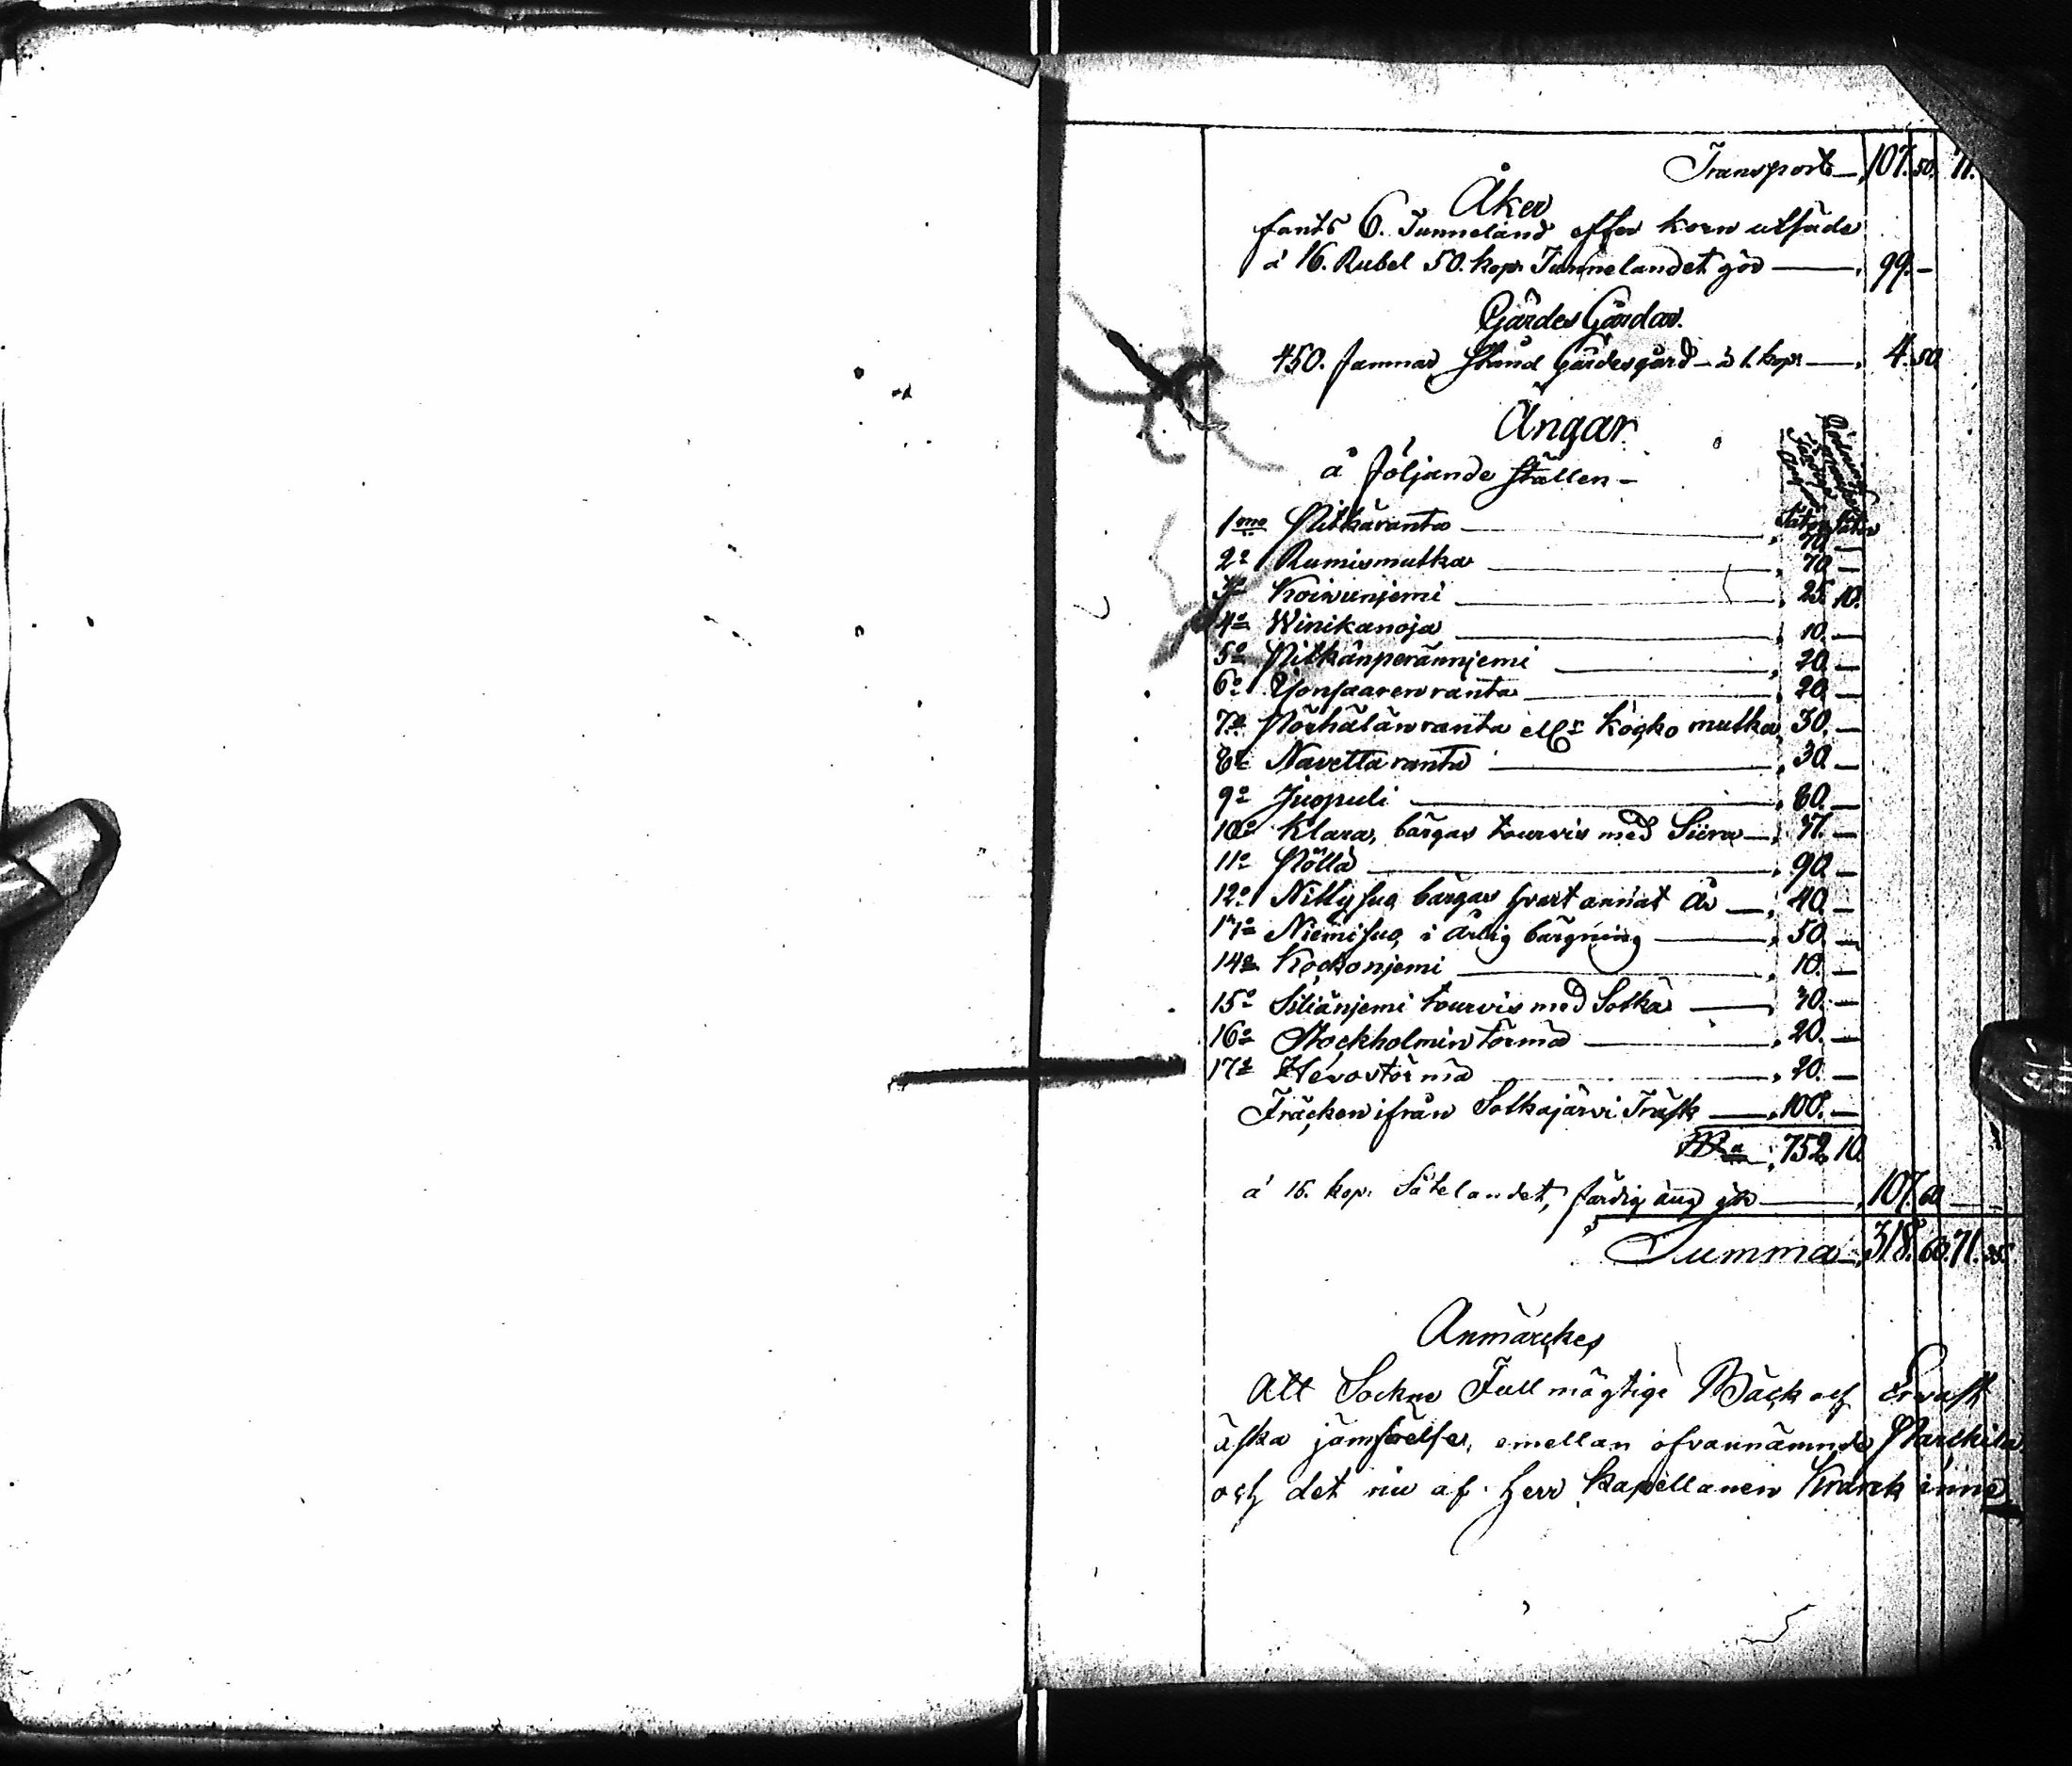 Transport 107. 50. 71.
Åker
fants 6. Tunneland efter korn utsäde
á 16. Rubel 50. kop: Tunnelandet gör 99.—
Gärdes Gårdar.
450. famnar Stånd Gärdesgård á 1. kop: 4. 50.
Ängar
å följande ställen —
1mo Pitkäranta 70. —
2o Rumismutka 70 —
3o Koiwunjemi 25. 10.
4o Winikanoja 10. —
5o Pitkänperännjemi 20. —
6o ranta 20. —
7o ranta ellr Kocko mutka 30. —
8o Navetta ranta 30. —
9o Juopuli 80. —
10o Klara, bärgas tourvis med Siira 37. —
11o Pöllä 90. —
12o bärgas hvart annat År 40. —
13o Niemisuo i årlig bärgning 50. —
14o Kockonjemi 10. —
15o Siliänjemi tourvis med Sotka 30. —
16o Stockholmin törmä 20. —
17o Hevostörmä 20. —
Fräcken ifrån Sotkajärvi Träsk 100. —
752. 10.
á 15. kop: Sätelandet, färdig äng gör 107. 60
Summa 318. 60. 71. 25.
Anmärckes
Att Sockne Fullmägtige Bäck och Ervast
äska jämförelse, emellan ofvannämnde
och det nu af Herr Kapellanen inne